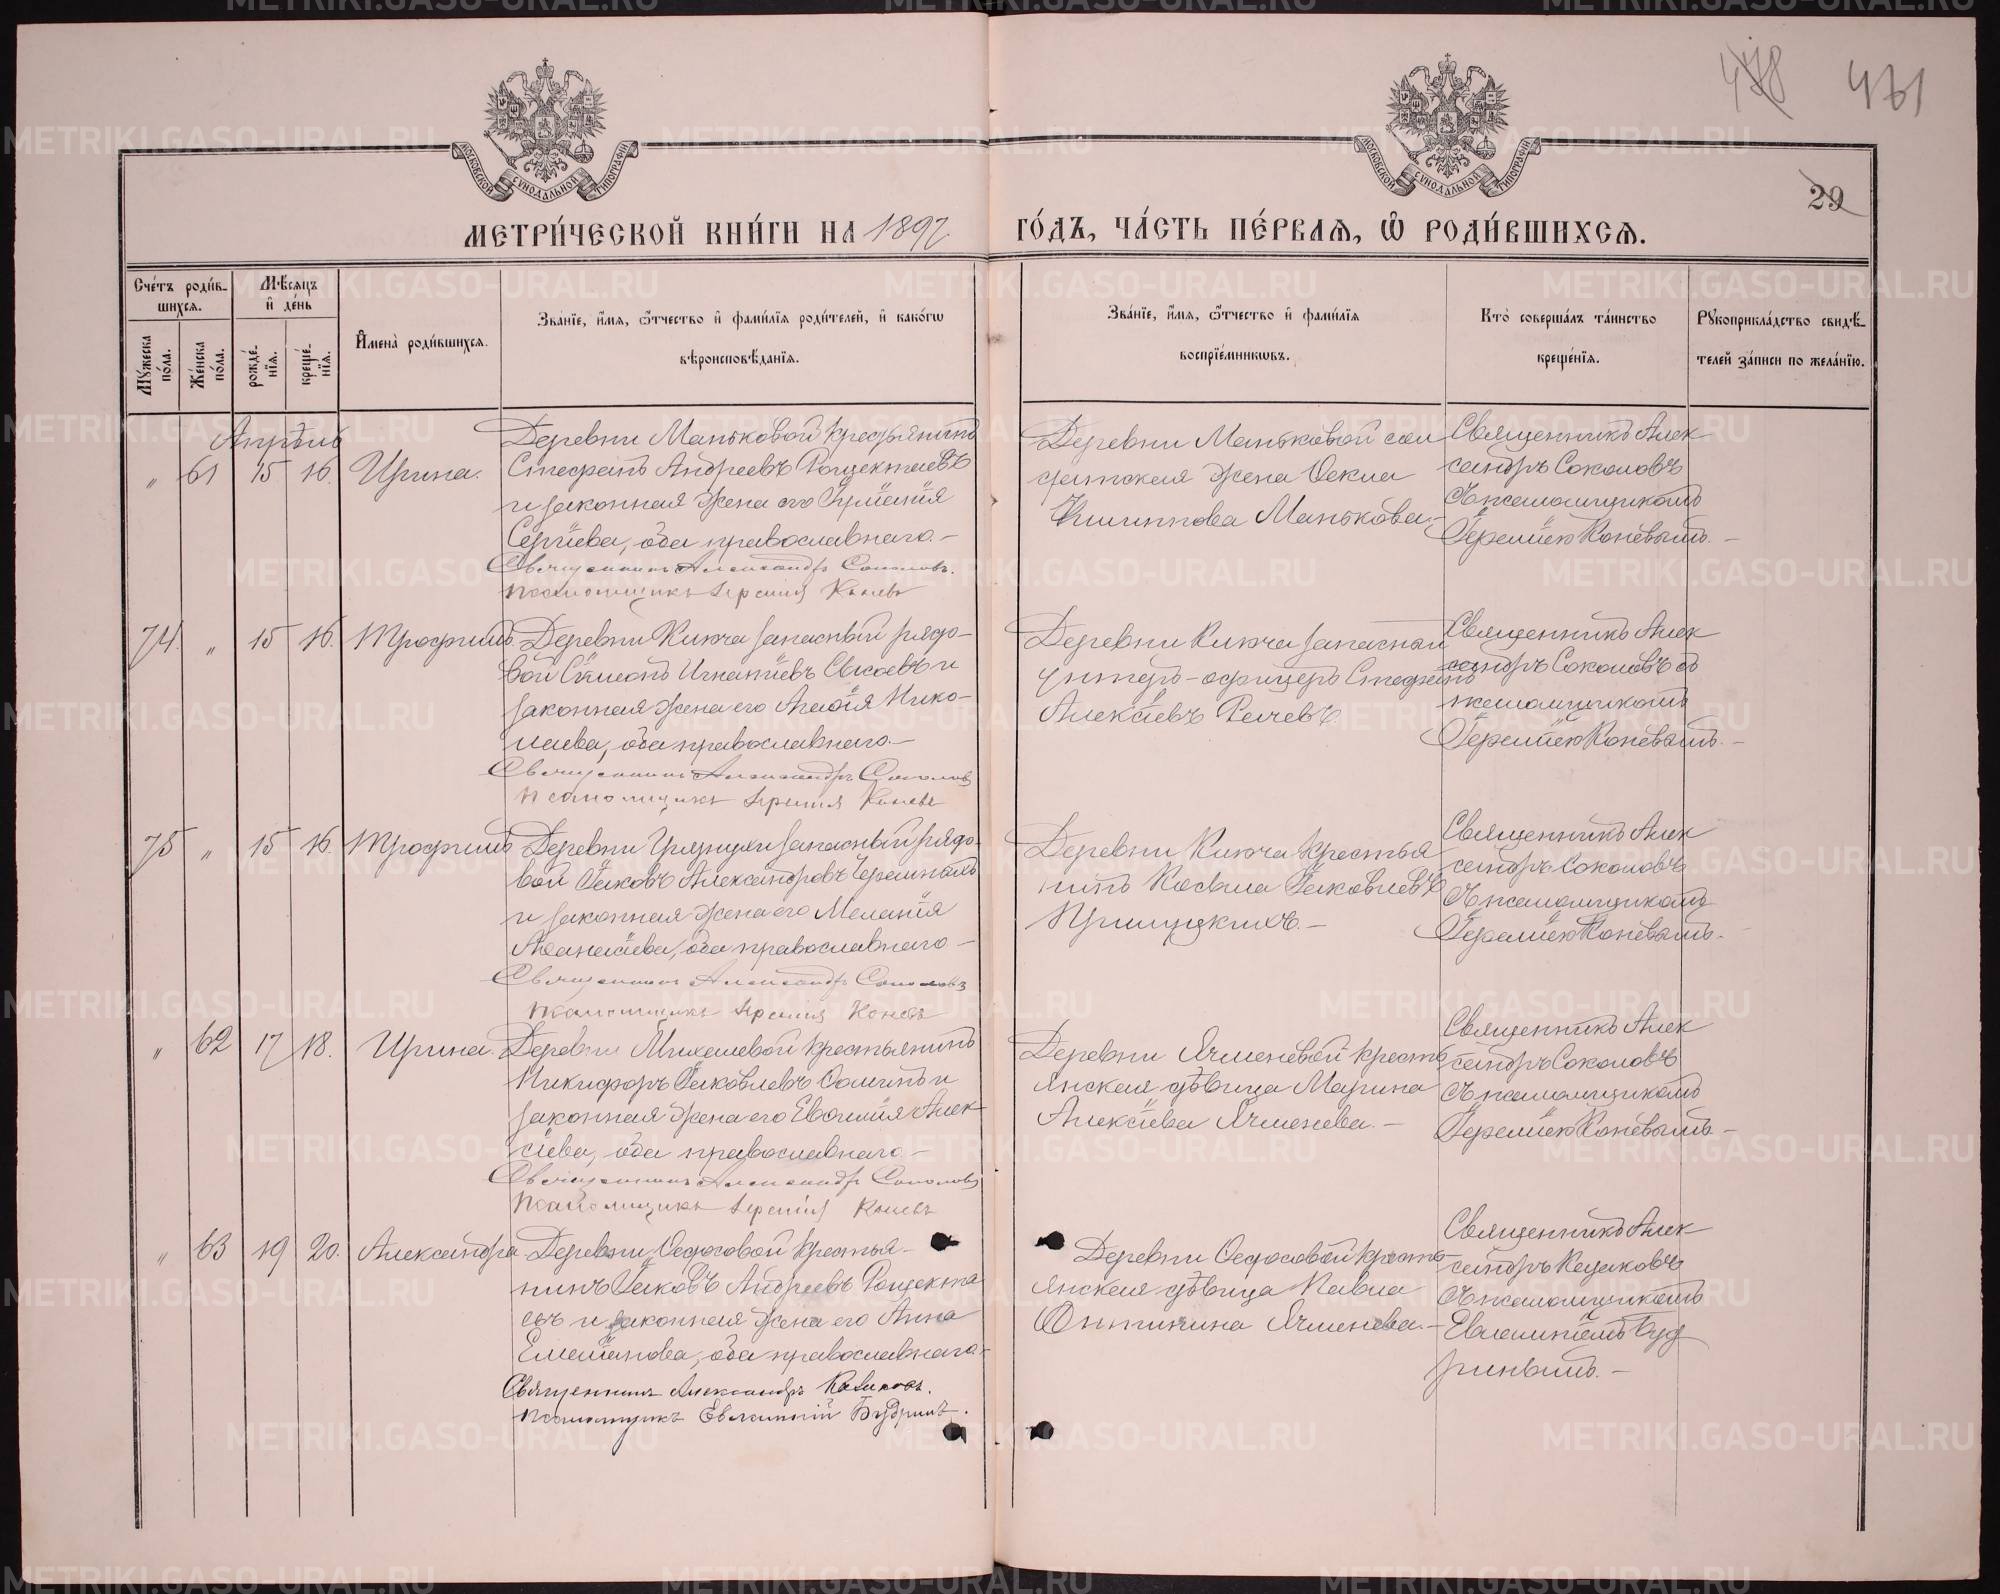 478 461
29
МЕТРИ́ЧЕСКОЙ КНИ́ГИ НА 1897. ГО́ДЪ, ЧА́СТЬ ПЕ́РВАЯ, Ѡ РОДИ́ВШИХСЯ.
Сче́тъ роди́в-
шихся.
Мѣ́сяцъ
и҆ де́нь
Мꙋ́жеска по́ла.
Же́нска по́ла.
рожде́-
нїѧ.
креще́-
нїѧ.
И҆мена̀ роди́вшихся.
Зва́нїе, и҆́мя, ѻ҆́тчество и҆ фами́лїя роди́телей, и҆ како́гѡ
вѣроисповѣ́данїя.
Зва́нїе, и҆́мя, ѻ҆́тчество и҆ фами́лїя
воспрїе́мникѡвъ.
Кто̀ соверша́лъ та́инство
креще́нїя.
Рꙋкоприкла́дство свидѣ́-
телей за́писи по жела́нїю.
Апрѣль
" 61 15 16. Ирина.
Деревни Маньковой крестьянинъ
Стефанъ Андреевъ
и законная жена его
Сергіева, оба православнаго.-
Священникъ Александръ Соколовъ.
псаломщикъ Іеремія Коневъ
Деревни Маньковой сол
датская жена Ѳекла
Филиппова Манькова.-
Священникъ Алек
сандръ Соколовъ
съ псаломщикомъ
Іереміею Коневымъ.-
74. " 15 16. Трофимъ.
Деревни Ключа запасный рядо-
вой Сѵмеонъ Игнатіевъ Сысоевъ и
законная жена его Аглаія Нико-
лаева, оба православнаго.-
Священникъ Александръ Соколовъ
псаломщикъ Іеремія Коневъ
Деревни Ключа запасный
унтеръ-офицеръ Стефанъ
Алексіевъ Речевъ.
Священникъ Алек
сандръ Соколовъ съ
псаломщикомъ
Іереміею Коневымъ.-
75 " 15 16. Трофимъ
Деревни запасный рядо-
вой Іаковъ Александровъ
и законная жена его Меланія
Аѳанасіева, оба православнаго-
Священникъ Александръ Соколовъ
псаломщикъ Іеремія Коневъ
Деревни Ключа крестья
нинъ Косьма Іаковлевъ
Священникъ Алек
сандръ Соколовъ
съ псаломщикомъ
Іереміею Коневымъ.-
" 62 17 18. Ирина.
Деревни Михалевой крестьянинъ
Никифоръ Іаковлевъ и
законная жена его Евѳимія Алек
сіева, оба православнаго.-
Священникъ Александръ Соколовъ
псаломщикъ Іеремія Коневъ
Деревни Ячменевой кресть
янская дѣвица Марина
Алексіева Ячменева.-
Священникъ Алек
сандръ Соколовъ
съ псаломщикомъ
Іереміею Коневымъ.-
" 63 19 20. Александра
Деревни Ѳедосовой крестья-
нинъ Іаковъ Андреевъ Рощекта
евъ и законная жена его Анна
Емеліанова, оба православнаго.
Священникъ Александръ Казаковъ.
псаломщикъ Евлампій Будринъ.
Деревни Ѳедосовой кресть-
янская дѣвица Павла
Ячменева.-
Священникъ Алек
сандръ Казаковъ
съ псаломщикомъ
Евлампіемъ Буд
ринымъ.-